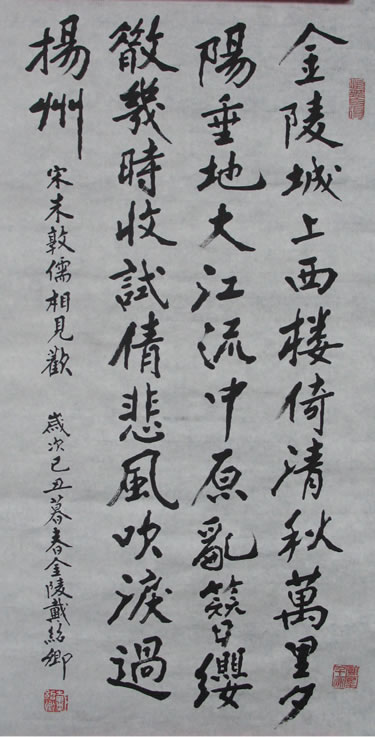 金陵城上西楼倚清秋萬里夕
陽垂地大江流中原亂簪纓
散幾時收試倩悲風吹淚過
揚州
宋朱敦儒相見歡 歲次己丑暮春金陵戴卿